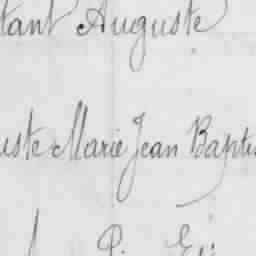 tant Auguste
uste Marie Jean Baptis